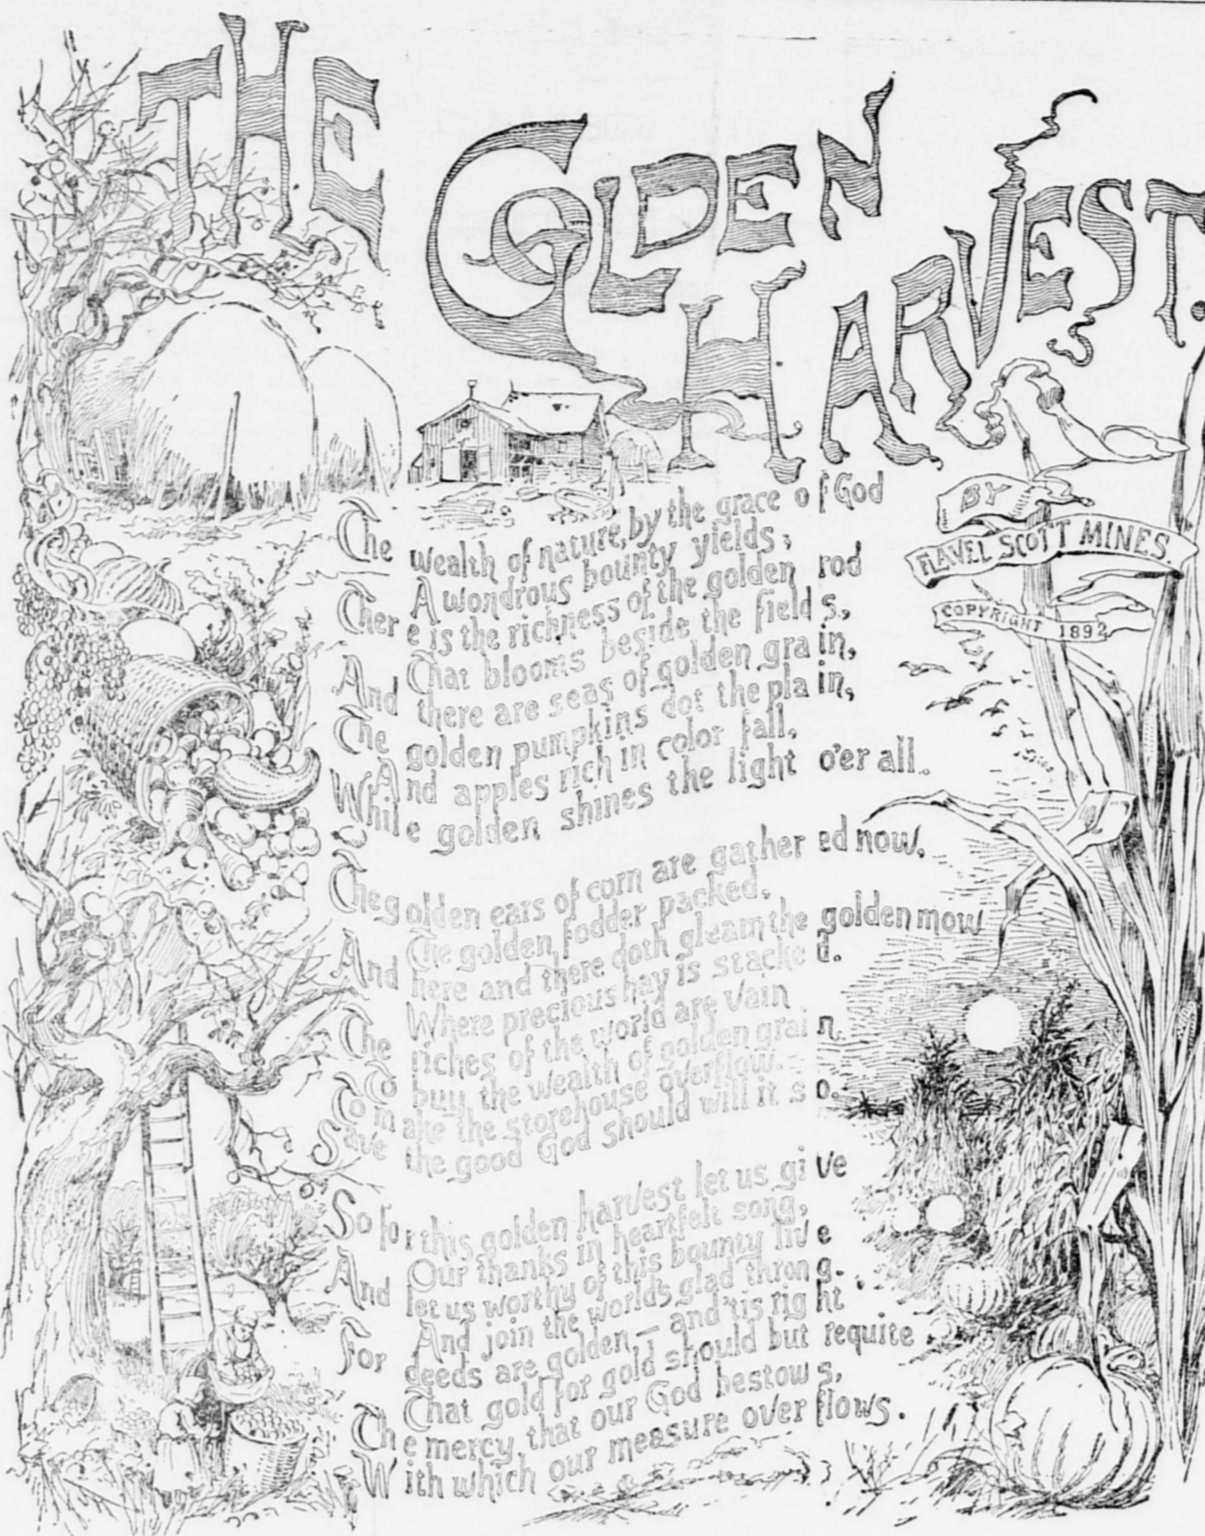 THE
GOLDEN
HARVEST.
BY
FLAVEL SCOTT MINES.
COPYRIGHT 1892
The wealth of nature, by the grace of God
A wondrous bounty yields;
There is the richness of the golden rod
That blooms beside the fields,
And there are seas of golden grain,
The golden pumpkins dot the plain,
And apples rich in color fall,
While golden shines the light o'er all.
The golden ears of corn are gathered now,
The golden fodder packed,
And here and there doth gleam the golden mow
Where precious hay is stacked.
The riches of the world are vain
To buy the wealth of golden grain.
To make the storehouse overflow.
Save the good God should will it so.
So for this golden harvest let us give
Our thanks in heartfelt song,
And let us worthy of this bounty live
And join the worlds glad throng.
For deeds are golden — and 'tis right
That gold for gold should but requite
The mercy, that our God bestows,
With which our measure overflows.